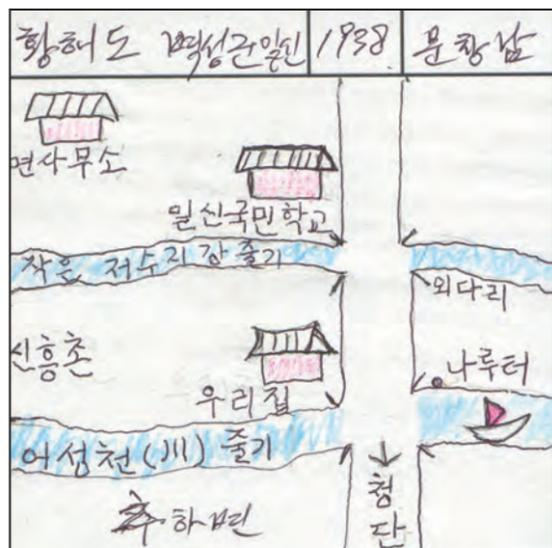 황해도 벽성군일신
1938.
문창남
면사무소
일신국민학교
작은 저수지강 줄기
외다리
신흥촌
나루터
우리집
어성천(川) 줄기
청단
추하면